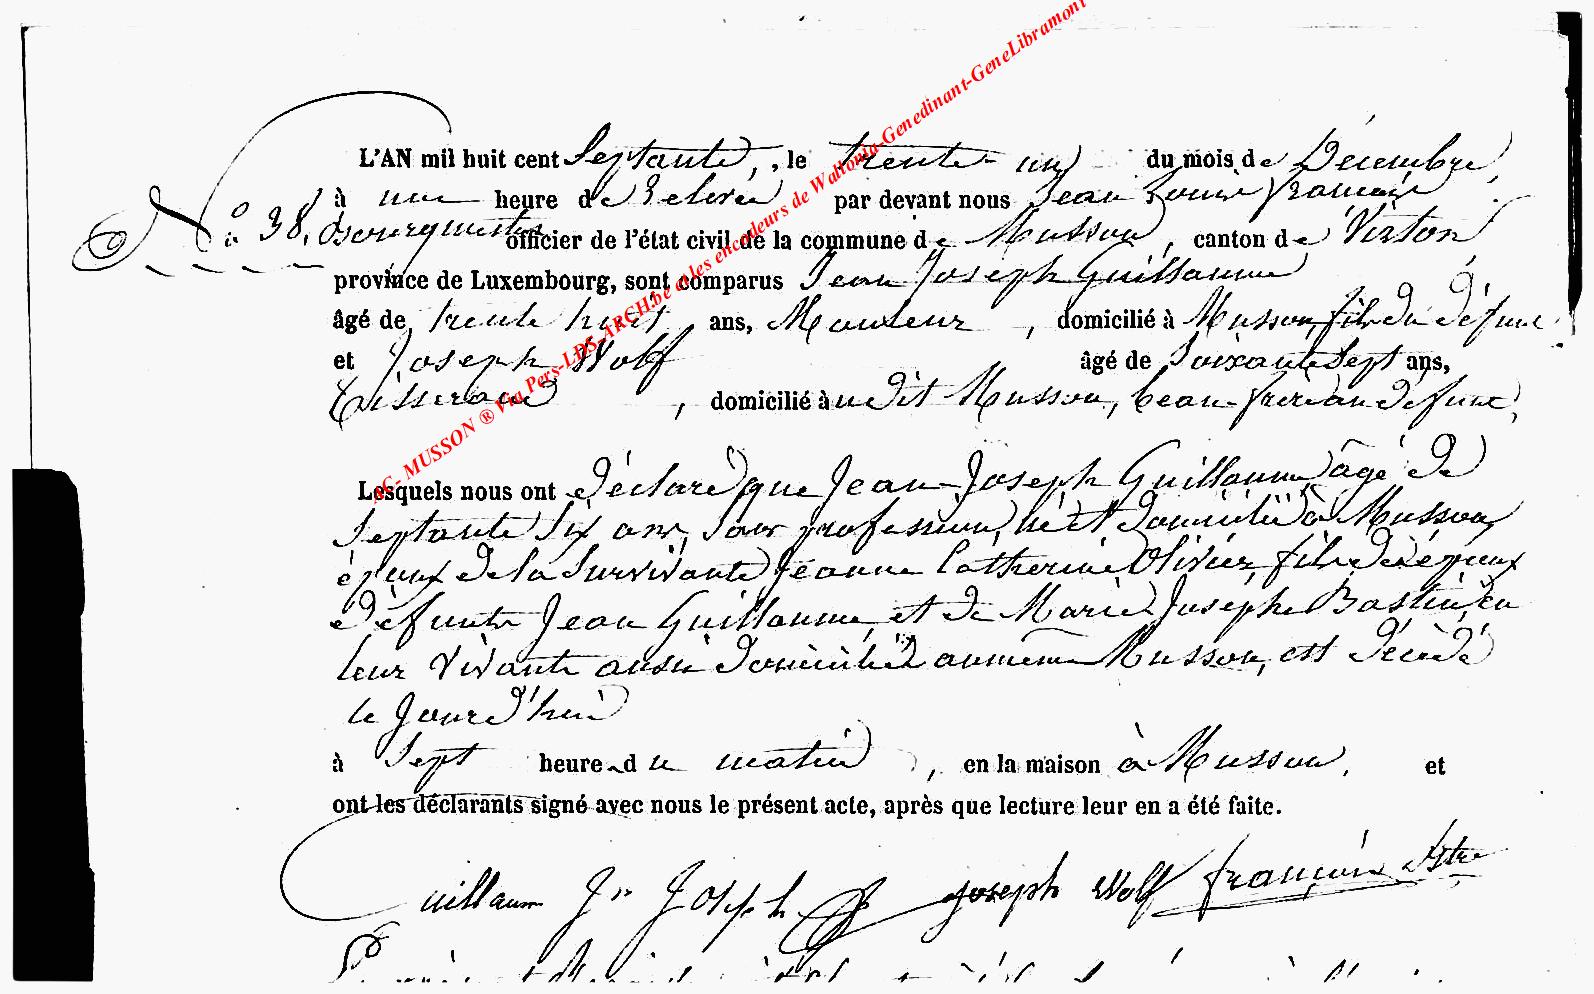 L'AN mil huit cent Septante, , le trente-un du mois de Décembre,
à une heure de Relevée par devant nous Jean Louis François
N.° 38. Bourgmestre officier de l'état civil de la commune de Musson, canton de Virton
province de Luxembourg, sont comparus Jean Joseph Guillaume
âgé de trente huit ans, Mouleur, domicilié à Musson, fils du défunt
et Joseph Wolf âgé de Soixante Sept ans,
Tisserand, domicilié à udit Musson, beau-frère du défunt,
Lesquels nous ont déclaré que Jean-Joseph Guillaume, âgé de
Septante Six ans, Sans profession, né et domicilié à Musson,
époux de la Survivante Jeanne Catherine Olivier, fils des époux
défunts Jean Guillaume, et de Marie Josephe Bastin, en
leur vivant aussi domiciliés au même Musson, est décédé
le Jourd'hui
à Sept heure du matin, en la maison à Musson, et
ont les déclarants signé avec nous le présent acte, après que lecture leur en a été faite.
Guillaume Jn Joseph Joseph Wolf françois
AG- MUSSON ® Via Pers-LDS-ARCH.be et les encodeurs de Waltonia-Genedinant-GeneLibramont